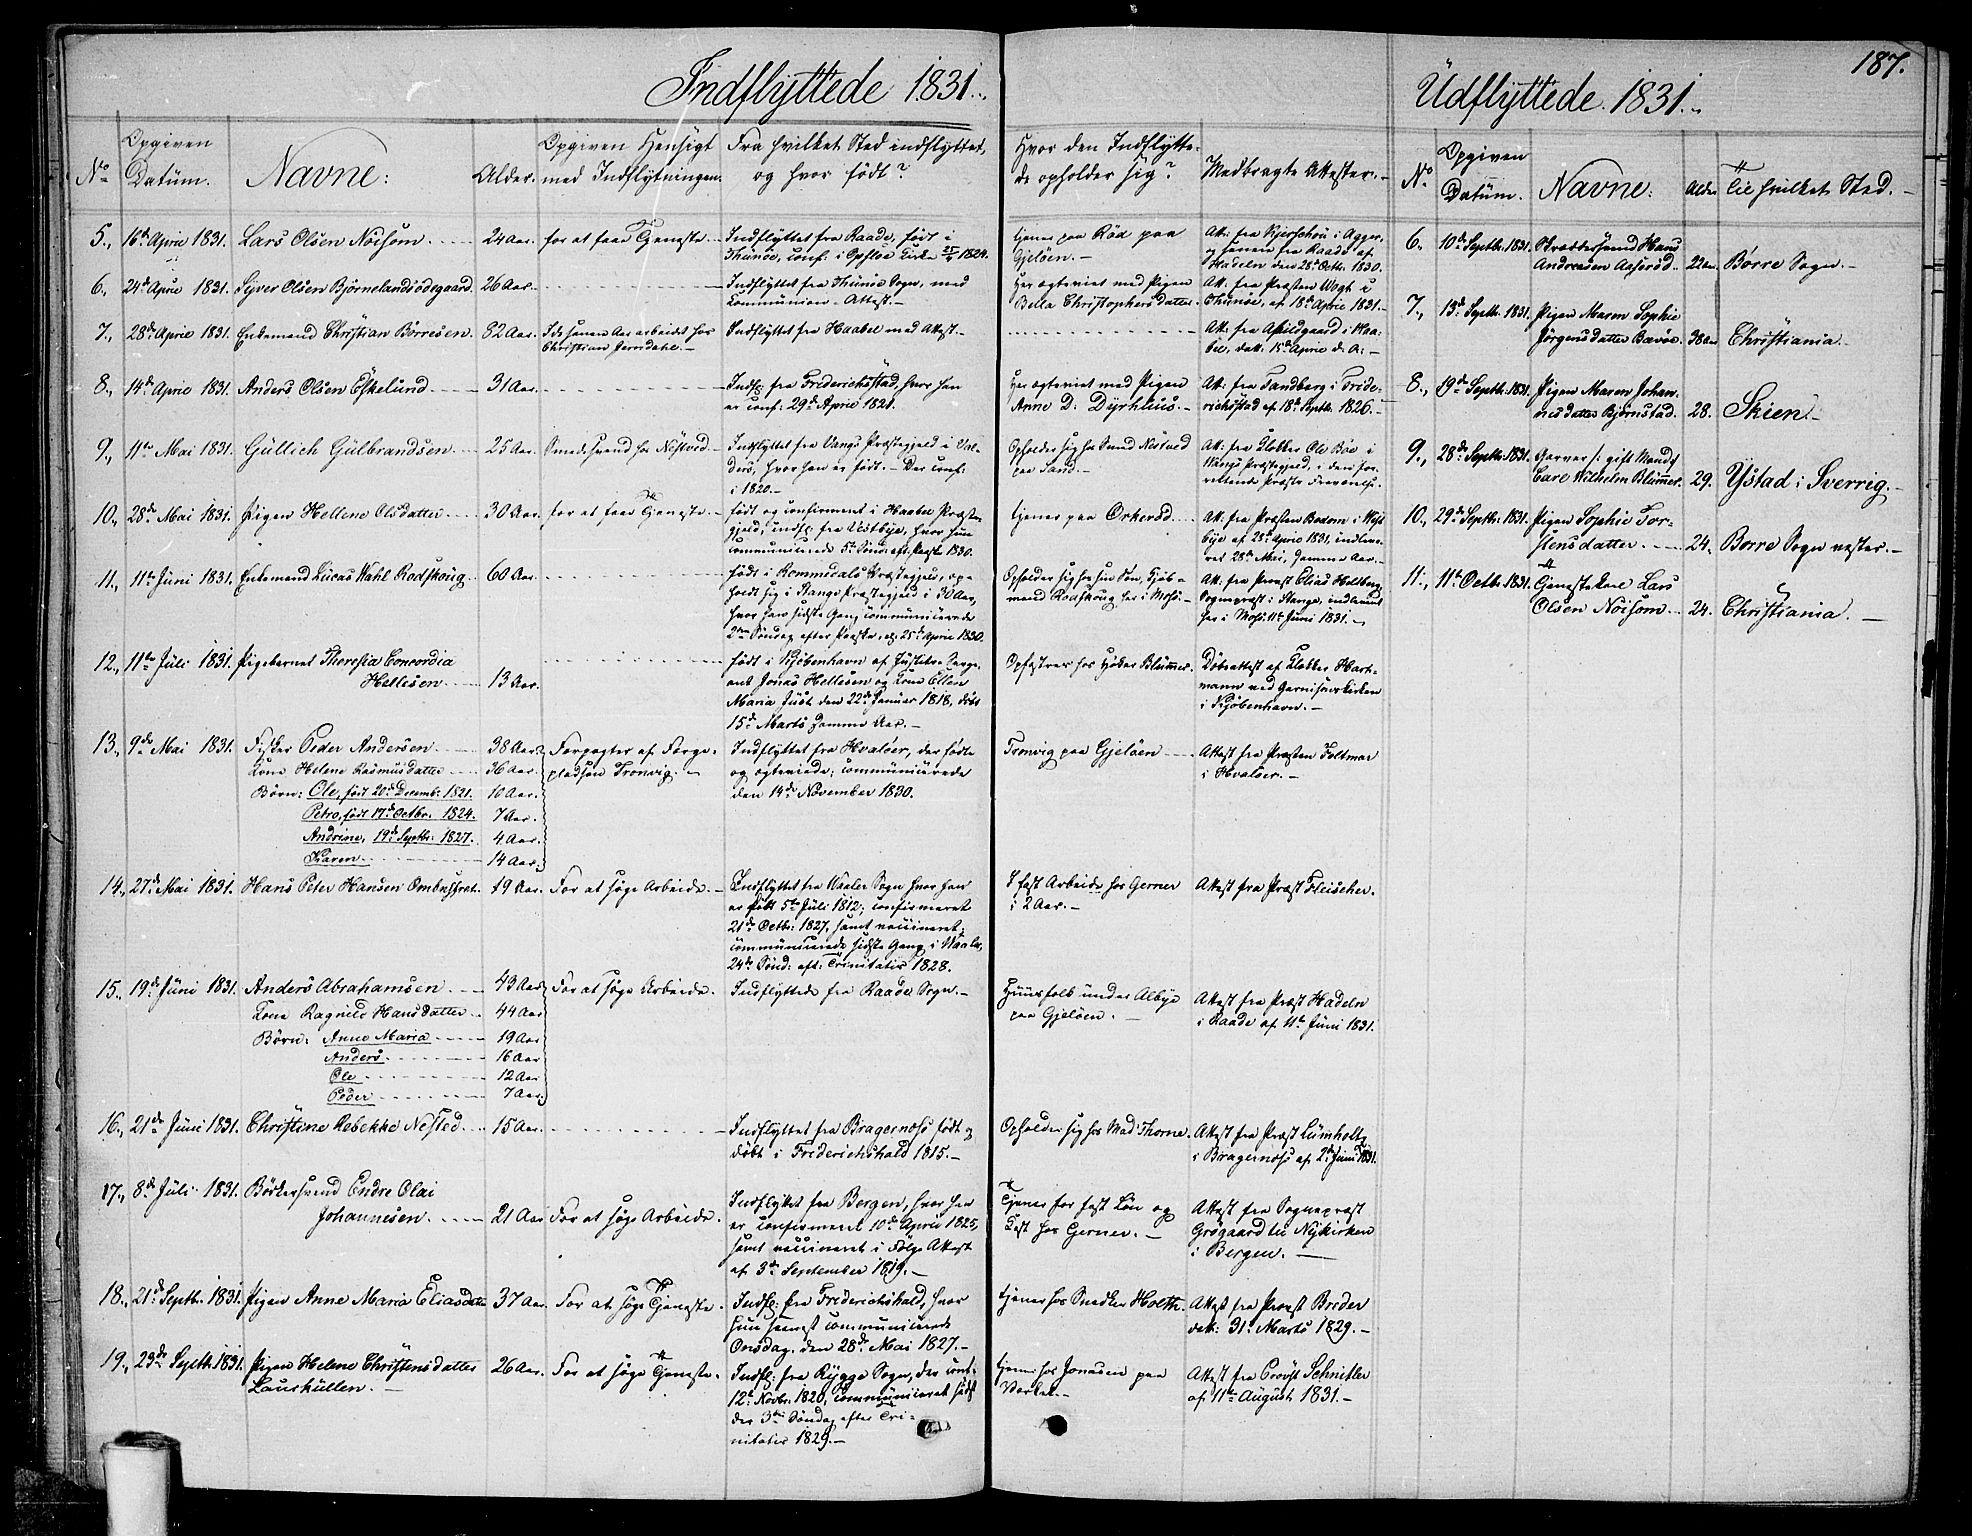 187.
Indflyttede 1831.
Udflyttede 1831.
No
Opgiven
Datum.
Navne:
Alder.
Opgiven Hensigt
med Indflytningen.
Fra hvilket Sted indflyttet,
og hvor født?
Hvor den Indflytte-
de opholder sig?
Medbragte Attester.
5., 16de April 1831. Lars Olsen Noisom 24 Aar. for at faae Tjeneste
Indflyttet fra Raade, født i
Thunøe, conf. i Kirke 1824.
tjener paa Rød paa
Gjeløen.
Att: fra Kjerschou i Agger,
og senere fra Raade af
Hadeln den 28de Octbr. 1830.
6., 24de April 1831. Syver Olsen Bjørnelandsødegaard 26 Aar.
Indflyttet fra Thunøe Sogn, med
Communion-Attest.
Her ægteviet med Pigen
Bella Christophersdatter.
Att. fra Præsten Vogt i
Thunøe, af 18de April 1831.
7., 28de April 1831. Enkemand Christian Børresen. 82 Aar.
Christian Jerndahl.
Indflyttet fra Haabøl med Attest.
Att: fra Abildgaard i Haa-
bøl, datt: 15de April d. A:
8., 14de April 1831. Anders Olsen Eskelund 31 Aar.
Indfl: fra Frederichsstad, hvor han
er conf: 29de April 1821.
Her ægteviet med Pigen
Anne D. Dyrhuus.
Att: fra Tandberg i Fride-
richsstad af 18de Septbr. 1826.
9., 11te Mai 1831. Gullich Gulbrandsen 25 Aar. Smedesvend hos Nestved
Indflyttet fra Vangs Præstegjeld i Val-
ders, hvor han er født. Der conf:
i 1820.
Opholder sig hos Smed Nestved
paa Sand.
Att: fra Klokker Ole Bøe i
Wangs Præstegjeld, i den for-
rettende Præsts Fraværelse.
10., 28de Mai 1831. Pigen Hellene Olsdatter 30 Aar. for at faae Tjeneste
født og confirmeret i Haabøl Præste-
gjeld, indfl. fra Vestbye, hvor hun
communicerede 5te Sønd: eft. Paaske 1830.
tjener paa Orkerød
Att: fra Præsten Bodom i West-
bye af 28de April 1831, indleve-
ret 28de Mai, samme Aar.
11., 11te Juni 1831. Enkemand Lucas Wahl Rodskoug 60 Aar.
født i Rommedals Præstegjeld, op-
holdt sig i Stange Præstegjeld i 30 Aar,
hvor han sidste Gang communicerede
2den Søndag efter Paaske, d. 25de April 1830.
Opholder sig hos sin Søn, Kjøb-
mand Rodskoug her i Moss.
Att: fra Præst Elias Heltberg,
Sognepræst i Stange, indleveret
her i Moss 11te Juni 1831.
12., 11te Juli 1831. Pigebarnet Theresia Concordia
Hellesen 13 Aar.
født i Kjøbenhavn af Justits-Serge-
ant Jonas Hellesen og Kone Ellen
Maria Just, den 22de Januar 1818, døbt
15de Marts samme Aar.
Opfostres hos Høker Blummer.
Døbeattest af Klokker Hart-
mann ved Garnisonskirken
i Kjøbenhavn.
13., 9de Mai 1831. Fisker Peder Andersen 38 Aar. Forpagter af Færge-
Kone Helene Rasmusdatter 36 Aar. pladsen Tronvig.
Børn: Ole, født 20de Decemb: 1821. 10 Aar.
Petra, født 17de Octbr. 1824. 7 Aar.
Andrine, 19de Septbr: 1827. 4 Aar.
Karen. 14 Aar.
Indflyttet fra Hvaløer, der fødte
og ægteviede; communicerede
den 14de November 1830.
Tronvig paa Gjeløen
Attest fra Præsten Foltmar
i Hvaløer.
14., 27de Mai 1831. Hans Peter Hansen Ombustvet. 19 Aar. For at søge Arbeide.
Indflyttet fra Waaler Sogn hvor han
er født 5te Juli 1812; confirmeret
21de Octbr: 1827, samt vaccineret;
communicerede sidste Gang i Waaler,
24de Sønd: eft: Trinitatis 1828.
I fast Arbeide hos Gerner
i 2 Aar.
Attest fra Præst Fleischer.
15., 19de Juni 1831. Anders Abrahamsen 43 Aar For at søge Arbeide.
Kone Ragnild Hansdatter 44 Aar
Børn: Anne Maria 19 Aar
Anders. 16 Aar
Ole 12 Aar
Peder 7 Aar.
Indflyttede fra Raade Sogn.
Huusfolk under Albye
paa Gjeløen.
Attest fra Præst Hadeln
i Raade af 11te Juni 1831.
16., 21de Juni 1831. Christine Rebekke Nested. 15 Aar.
Indflyttet fra Bragernæss født og
døbt i Frederichshald 1815.
Opholder sig hos Mad: Thorne.
Attest fra Præst Lumholtz
i Bragernæss af 2de Juni 1831.
17., 8de Juli 1831. Bødkersvend Endre Olai
Johannesen 21 Aar For at søge Arbeide.
Indflyttet fra Bergen, hvor han
er confirmeret 10de April 1825,
samt vaccineret i Følge Attest
af 3de September 1819.
Tjener for fast Løn og
Kost hos Gerner.
Attest fra Sognepræst
Grøgaard til Nykirken
i Bergen.
18., 21de Septbr. 1831. Pigen Anne Maria Eliasdatter 37 Aar For at søge Tjeneste.
Indfl: fra Frederichshald, hvor
hun senest communicerede
Onsdag, den 28de Mai 1827.
tjener hos Snedker Holth.
Attest fra Præst Breder
datt: 31te Marts 1829.
19., 23de Septbr. 1831. Pigen Helene Christensdatter
Laurkullen. 26 Aar. For at søge Tjeneste.
Indfl: fra Rygge Sogn, der conf:
12te Novbr: 1820, communiceret sidst
der 3die Søndag efter Tri-
nitatis 1829.
tjener hos Jonasen paa
Værket.
Attest fra Provst Schnitler
af 11te August 1831.
No
Opgiven
Datum.
Navne:
Alder
Til hvilket Sted.
6., 10de Septbr. 1831. Skræddersvend Hans
Andreasen Aaserød. 22 Aar Børre Sogn.
7., 13de Septbr. 1831. Pigen Maren Sophie
Jørgensdatter Bævøe. 38 Aar Christiania.
8., 19de Septbr. 1831. Pigen Maren Johan-
nesdatter Bjørnstad. 28. Skien.
9., 28de Septbr. 1831. Garver /: gift Mand:/
Carl Wilhelm Blummer. 29. Ystad i Sverrig.
10., 29de Septbr. 1831. Pigen Sophie Tor-
stensdatter. 24. Borre Sogn vester.
11., 11te Octbr. 1831. Tjenestekarl Lars
Olsen Noisom. 24. Christiania.